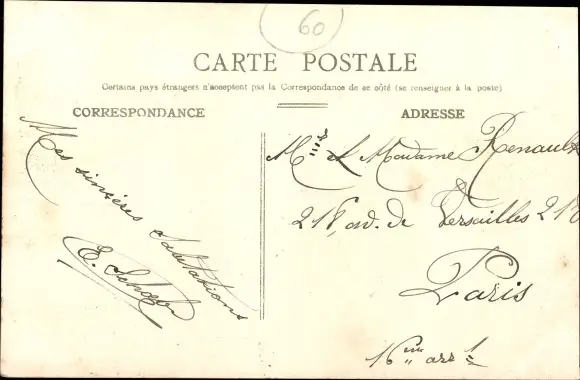 60
CARTE POSTALE
Certains pays étrangers n'acceptent pas la Correspondance de ce côté (se renseigner à la poste)
CORRESPONDANCE
ADRESSE
Mes sincères Salutations
E.
Mr et Madame Renault
218, av. de Versailles 218
Paris
16me arrt